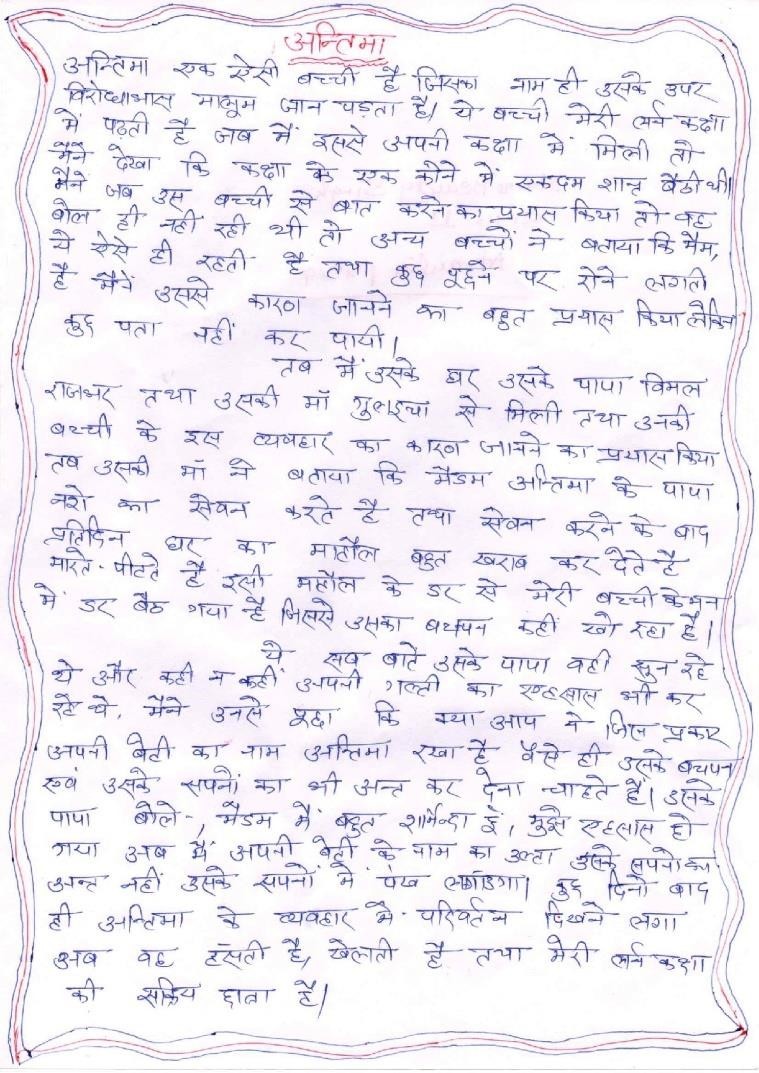 अन्तिमा
अन्तिमा एक ऐसी बच्ची है जिसका नाम ही उसके उपर
विरोधाभास मालूम जान पड़ता है। ये बच्ची मेरी लर्न कक्षा
में पढ़ती है जब मैं इससे अपनी कक्षा में मिली तो
मैंने देखा कि कक्षा के एक कोने में एकदम शान्त बैठी थी।
मैंने जब उस बच्ची से बात करने का प्रयास किया तो वह
बोल ही नहीं रही थी तो अन्य बच्चों ने बताया कि मैम,
ये ऐसे ही रहती है तथा कुछ पूछने पर रोने लगती
है मैंने उससे कारण जानने का बहुत प्रयास किया लेकिन
कुछ पता नहीं कर पायी।
तब मैं उसके घर उसके पापा विमल
राजभर तथा उसकी माँ गुलाइचा से मिली तथा उनकी
बच्ची के इस व्यवहार का कारण जानने का प्रयास किया
तब उसकी माँ ने बताया कि मैडम अन्तिमा के पापा
नशे का सेवन करते है तथा सेवन करने के बाद
प्रतिदिन घर का माहौल बहुत खराब कर देते है
मारते-पीटते है इसी महौल के डर से मेरी बच्ची के मन
में डर बैठ गया है जिससे उसका बचपन कहीं खो रहा है।
ये सब बातें उसके पापा वही सुन रहे
थे और कही न कहीं अपनी गल्ती का एहसास भी कर
रहे थे, मैंने उनसे पूछा कि क्या आप ने जिस प्रकार
अपनी बेटी का नाम अन्तिमा रखा है वैसे ही उसके बचपन
एवं उसके सपनों का भी अन्त कर देना चाहते हैं। उसके
पापा बोले-, मैडम मैं बहुत शर्मिन्दा हूँ, मुझे एहसास हो
गया अब मैं अपनी बेटी के नाम का उल्टा उसके सपनो का
अन्त नहीं उसके सपनों में पंख लगाउंगा। कुछ दिनो बाद
ही अन्तिमा के व्यवहार में परिवर्तन दिखने लगा
अब वह हँसती है, खेलती है तथा मेरी लर्न कक्षा
की सक्रिय छात्रा है।